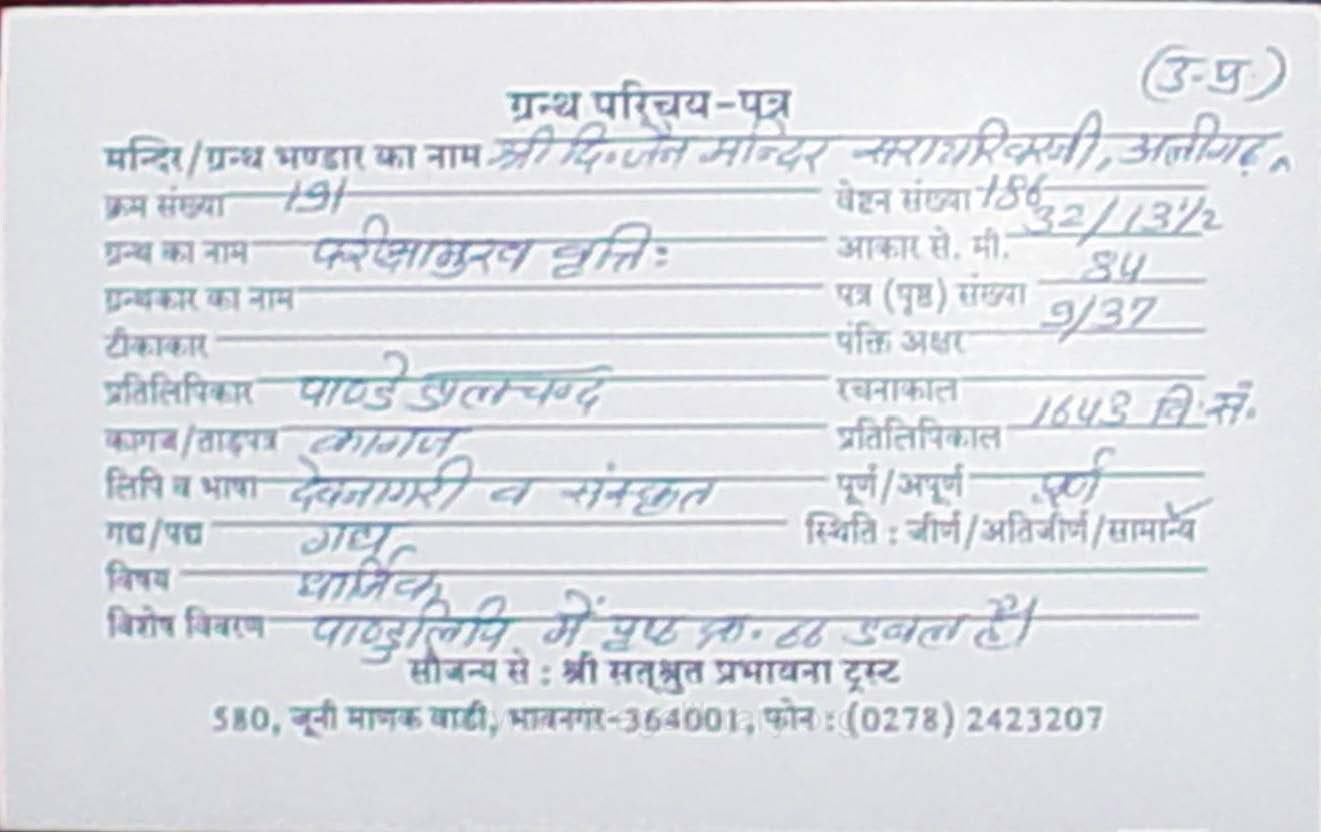 (उ-प्र.)
ग्रन्थ परिचय-पत्र
मन्दिर/ग्रन्थ भण्डार का नाम श्री दि. जैन मन्दिर अलीगढ़,
क्रम संख्या 191 वेष्टन संख्या 186
ग्रन्थ का नाम परीक्षामुख वृत्ति: आकार से. मी. 32/13½
ग्रन्थकार का नाम पत्र (पृष्ठ) संख्या 84
टीकाकार पंक्ति अक्षर 9/37
प्रतिलिपिकार पाण्डे रचनाकाल
कागज/ताड़पत्र कागज प्रतिलिपिकाल 1643 वि. सं.
लिपि व भाषा देवनागरी व संस्कृत पूर्ण/अपूर्ण पूर्ण
गद्य/पद्य गद्य स्थिति : जीर्ण/अतिजीर्ण/सामान्य
विषय धार्मिक
विशेष विवरण पाण्डुलिपि में पृष्ठ क्र. डबल है।
सौजन्य से : श्री सत्श्रुत प्रभावना ट्रस्ट
580, जूनी माणक वाडी, भावनगर-364001, फोन : (0278) 2423207